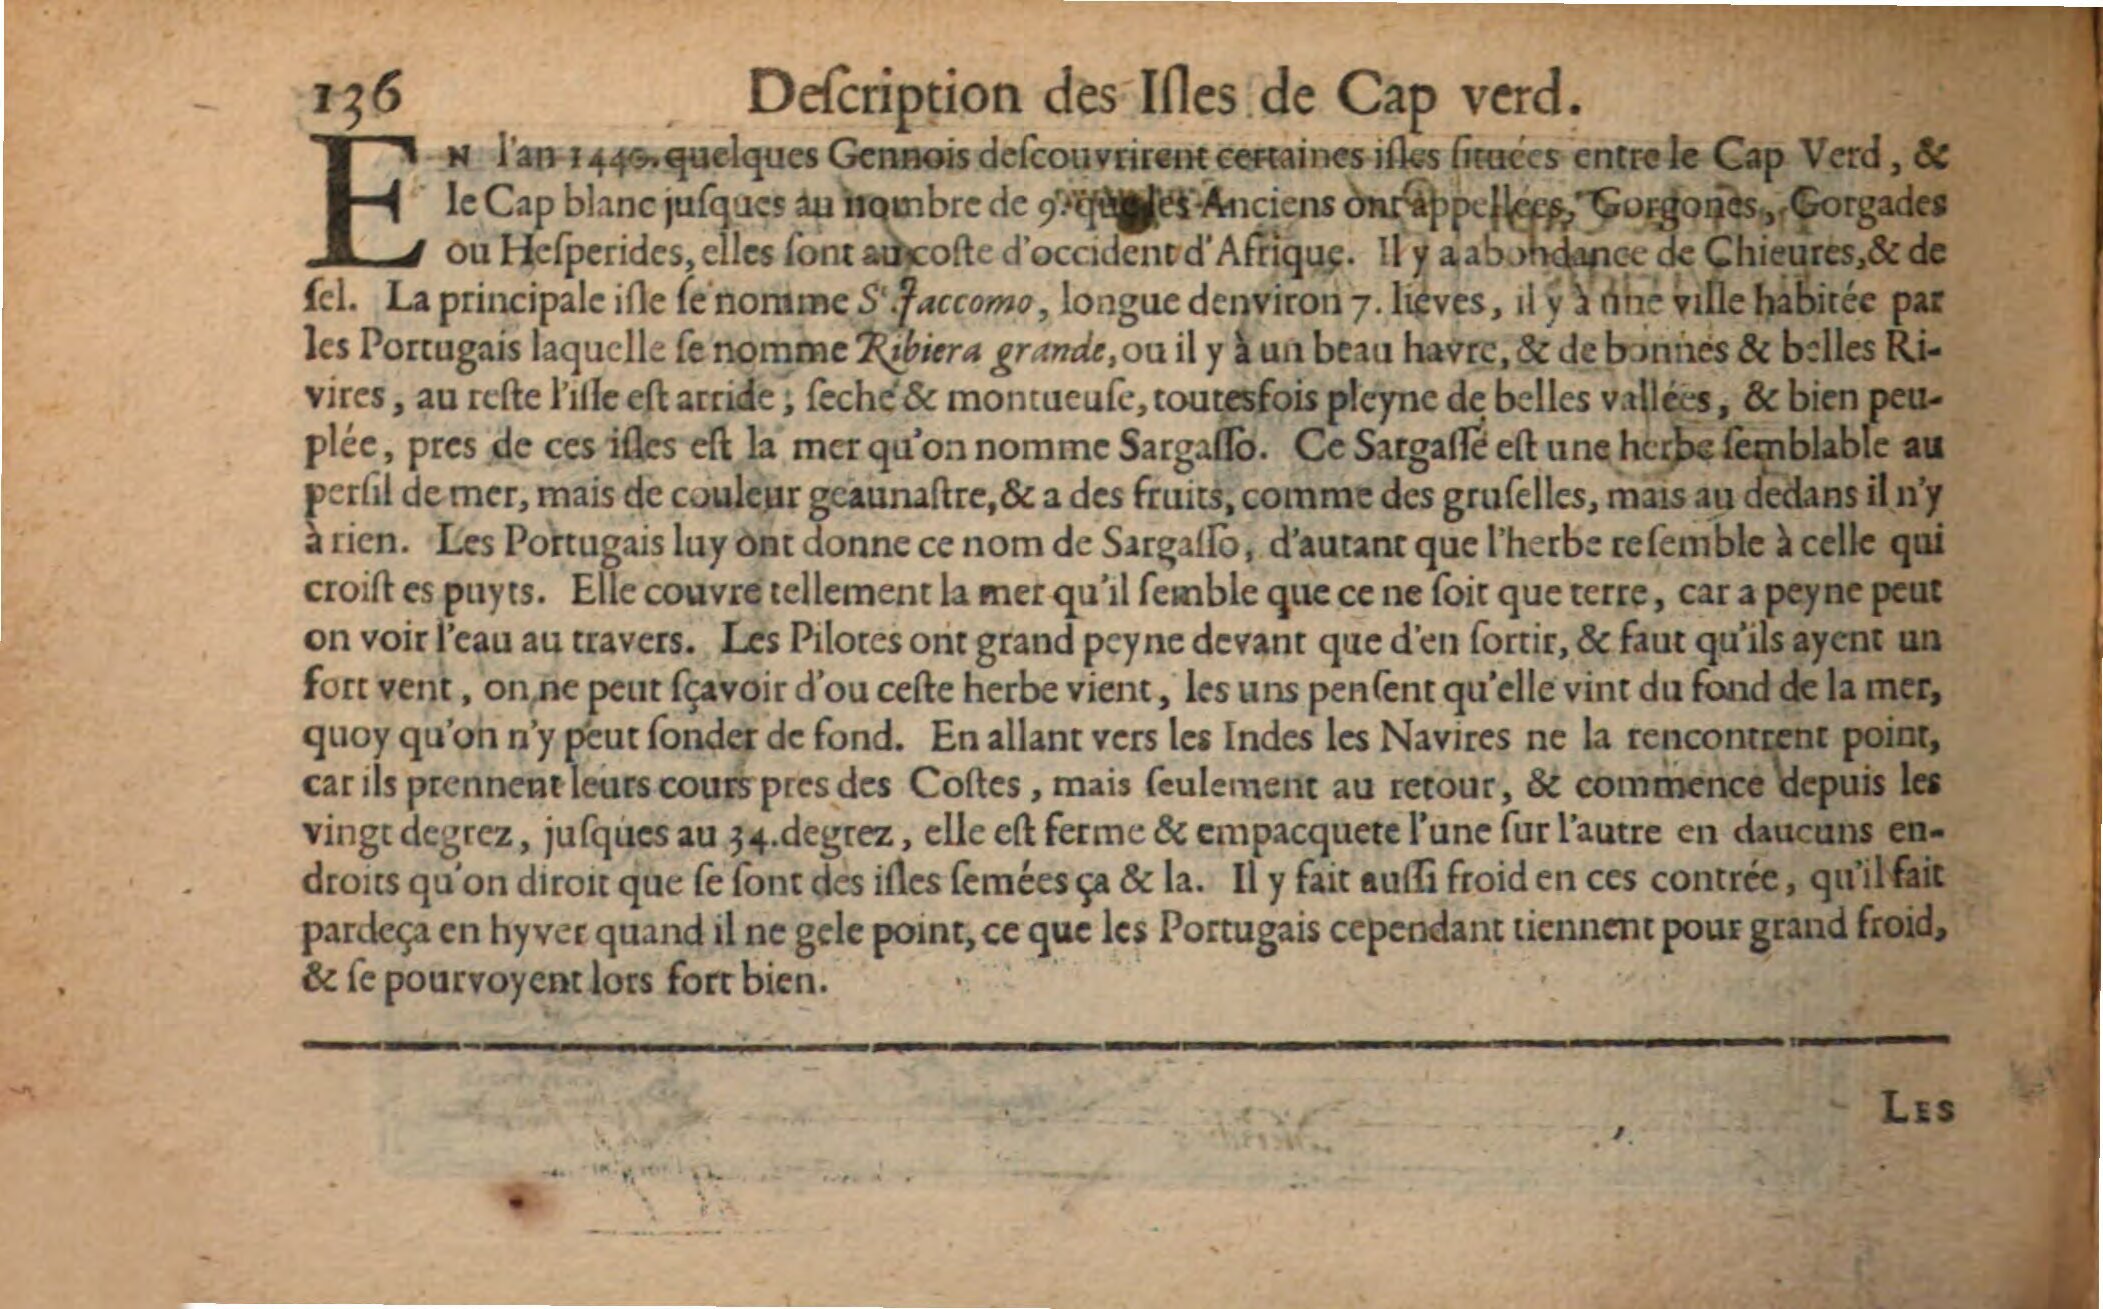 136 Deſcription des Iſles de Cap verd.
EN l'an 1440. quelques Gennois deſcouvrirent certaines iſles ſituées entre le Cap Verd, &
le Cap blanc juſques au nombre de 9. que les Anciens ont appellées, Gorgones, Gorgades
ou Heſperides, elles ſont au coſte d'occident d'Afrique. Il y a abondance de Chieures, & de
ſel. La principale iſle ſe nomme St. Jaccomo, longue denviron 7. lieves, il y à une ville habitée par
les Portugais laquelle ſe nomme Ribiera grande, ou il y à un beau havre, & de bonnes & belles Ri-
vires, au reſte l'iſle eſt arride, ſeche & montueuſe, toutesfois pleyne de belles vallées, & bien peu-
plée, pres de ces iſles eſt la mer qu'on nomme Sargaſſo. Ce Sargaſſe eſt une herbe ſemblable au
perſil de mer, mais de couleur geaunaſtre, & a des fruits, comme des gruſelles, mais au dedans il n'y
à rien. Les Portugais luy ont donne ce nom de Sargaſſo, d'autant que l'herbe reſemble à celle qui
croiſt es puyts. Elle couvre tellement la mer qu'il ſemble que ce ne ſoit que terre, car a peyne peut
on voir l'eau au travers. Les Pilotes ont grand peyne devant que d'en ſortir, & faut qu'ils ayent un
fort vent, on ne peut ſçavoir d'ou ceſte herbe vient, les uns penſent qu'elle vint du fond de la mer,
quoy qu'on n'y peut ſonder de fond. En allant vers les Indes les Navires ne la rencontrent point,
car ils prennent leurs cours pres des Coſtes, mais ſeulement au retour, & commence depuis les
vingt degrez, juſques au 34. degrez, elle eſt ferme & empacquete l'une ſur l'autre en daucuns en-
droits qu'on diroit que ſe ſont des iſles ſemées ça & la. Il y fait auſſi froid en ces contrée, qu'il fait
pardeça en hyver quand il ne gele point, ce que les Portugais cependant tiennent pour grand froid,
& ſe pourvoyent lors fort bien.
LES